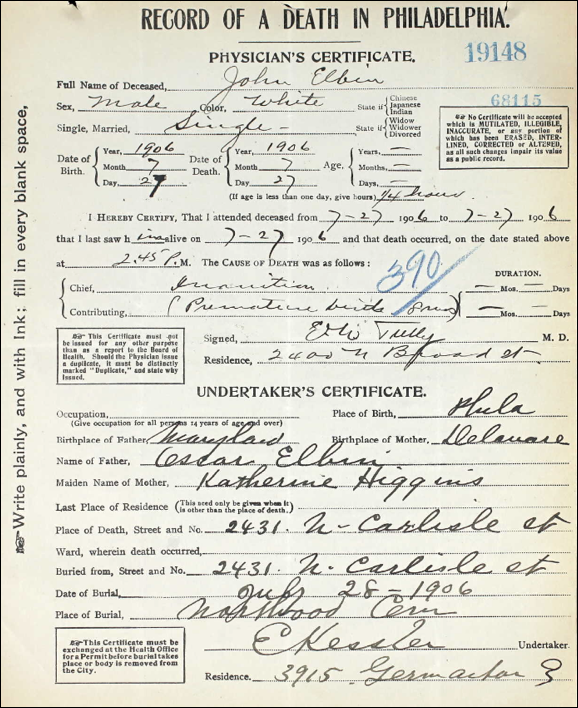 RECORD OF A DEATH IN PHILADELPHIA.
PHYSICIAN'S CERTIFICATE.
19148
Full Name of Deceased, John Elbin
68115
Sex, Male Color, White State if Chinese Japanese Indian
Single, Married, Single State if Widow Widower Divorced
No Certificate will be accepted
which is MUTILATED, ILLEGIBLE,
INACCURATE, or any portion of
which has been ERASED, INTER-
LINED, CORRECTED or ALTERED,
as all such changes impair its value
as a public record.
Date of Birth. Year, 1906 Date of Death. Year, 1906 Age, Years, —
Month 7 Month 7 Months, —
Day, 27 Day, 27 Days, —
(If age is less than one day, give hours) 1/4 hour
I HEREBY CERTIFY, That I attended deceased from 7-27 1906 to 7-27 1906
that I last saw him alive on 7-27 1906 and that death occurred, on the date stated above
at 2.45 P. M. The CAUSE OF DEATH was as follows:
390
DURATION.
Chief, Inanition — Mos. — Days
Contributing, (Premature birth) — Mos. — Days
This Certificate must not
be issued for any other purpose
than as a report to the Board of
Health. Should the Physician issue
a duplicate, it must be distinctly
marked "Duplicate," and state why
issued.
Signed, Tully M. D.
Residence, 2400 N Broad st
UNDERTAKER'S CERTIFICATE.
Occupation, Place of Birth, Phila
(Give occupation for all persons 14 years of age and over)
Birthplace of Father, Maryland Birthplace of Mother, Delaware
Name of Father, Oscar Elbin
Maiden Name of Mother, Katherine Higgins
Last Place of Residence (This need only be given when it is other than the place of death.)
Place of Death, Street and No. 2431. N. Carlisle st
Ward, wherein death occurred,
Buried from, Street and No. 2431. N. Carlisle st
Date of Burial, July 28-1906
Place of Burial, Northwood Cem
E Kessler Undertaker.
This Certificate must be
exchanged at the Health Office
for a Permit before burial takes
place or body is removed from
the City.
Residence. 3915 Germantown
Write plainly, and with Ink; fill in every blank space,